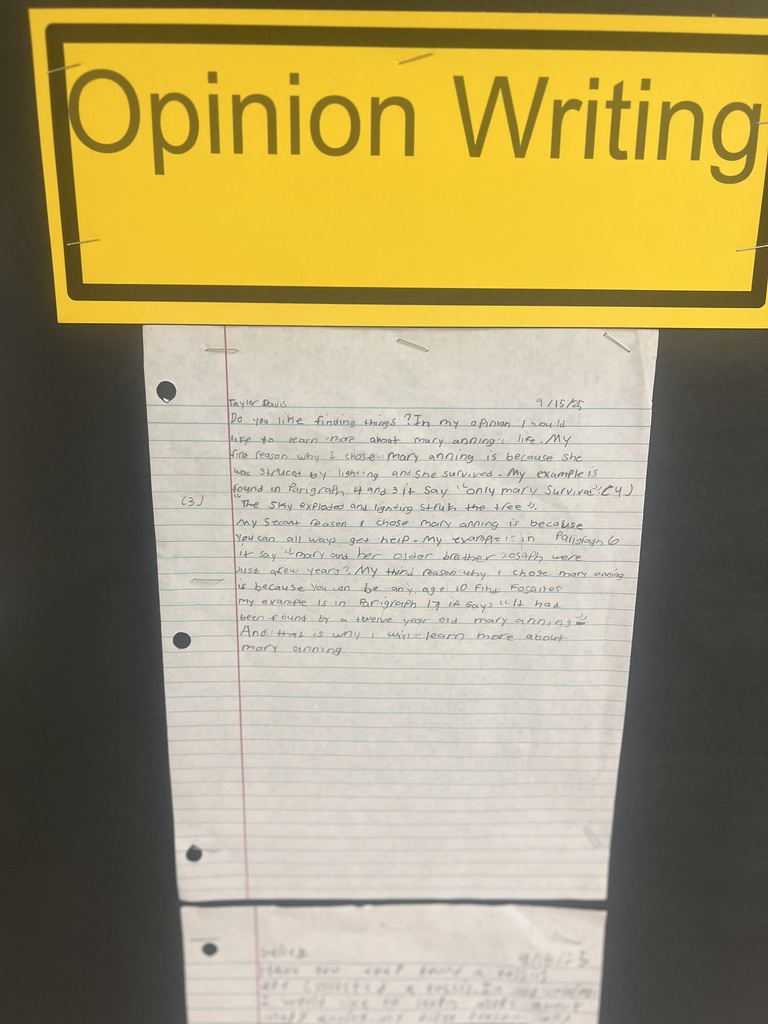 Opinion Writing
Taylor Davis 9/15/25
Do you like finding things? In my opinion I would
like to learn more about mary anning's life. My
first reason why I chose mary anning is because she
was struced by lighting and she survived. My example is
found in Parigraph 4 and 3 it say "only mary survived" (4)
(3) "The sky exploded and lighting struk the tree".
my second reason I chose mary anning is because
you can all ways get help. My example is in Parigraph 6
it say "mary and her older brother Josaph were
Just afew years". My third reason why I chose mary anning
is because you can be any age to find
my example is in Parigraph 17 it says "It had
been found by a twelve year old mary anning"
And that is why I will learn more about
mary anning
9/16/25
Have you ever found a
I would like to learn more about